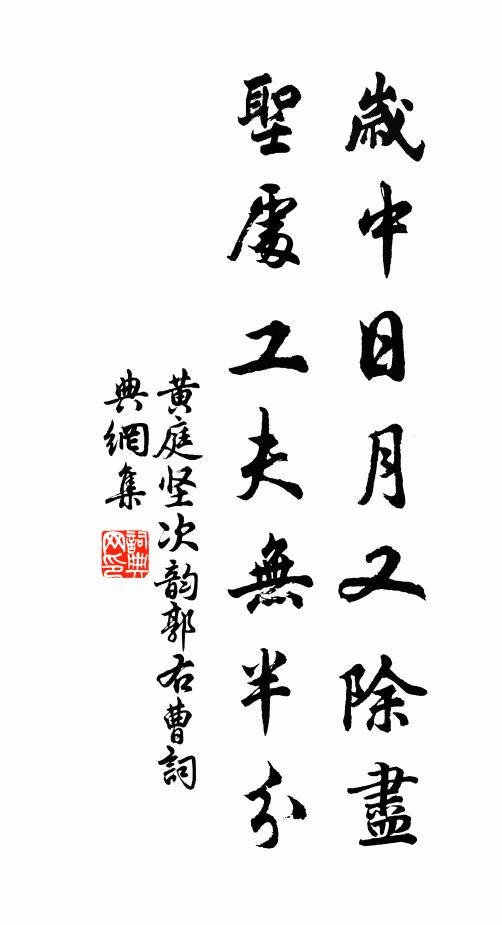 歲中日月又除盡
聖處工夫無半分
黃庭坚次韵郭右曹詞
典網集
詞典
网印